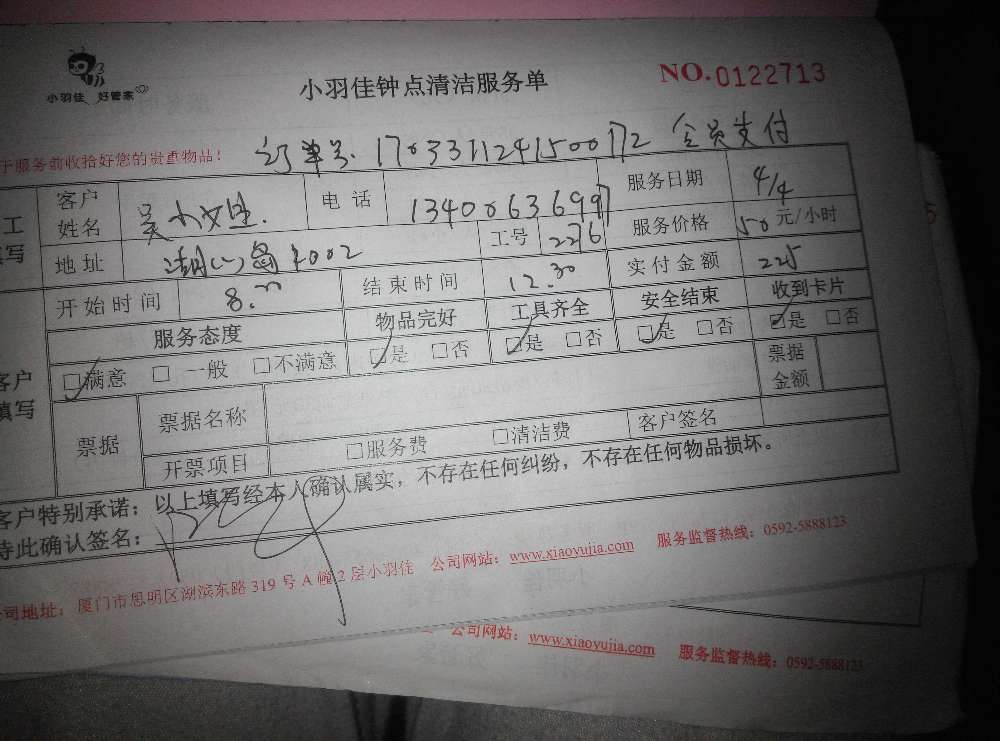 小羽佳 好管家
小羽佳钟点清洁服务单
NO.0122713
于服务前收拾好您的贵重物品！
订单号. 170331124150072 会员支付
工
填写
客户姓名 吴小姐. 电话 13400636997 服务日期 4/4
地址 1002 工号 2276 服务价格 50元/小时
开始时间 8.00 结束时间 12.30 实付金额 225
服务态度 物品完好 工具齐全 安全结束 收到卡片
□满意 □一般 □不满意 □是 □否 □是 □否 □是 □否 □是 □否
客户
填写
票据 票据名称 票据金额
开票项目 □服务费 □清洁费 客户签名
客户特别承诺：以上填写经本人确认属实，不存在任何纠纷，不存在任何物品损坏。
特此确认签名：
公司地址：厦门市思明区湖滨东路319号A幢2层小羽佳 公司网站：www.xiaoyujia.com 服务监督热线：0592-5888123
公司网站：www.xiaoyujia.com 服务监督热线：0592-5888123